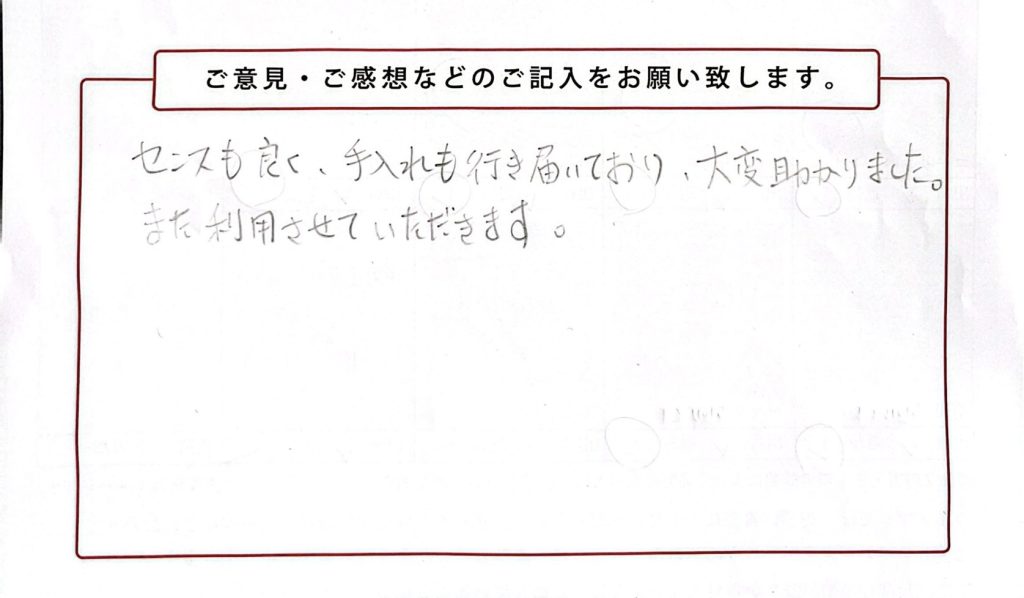 ご意見・ご感想などのご記入をお願い致します。
センスも良く、手入れも行き届いており、大変助かりました。
また利用させていただきます。